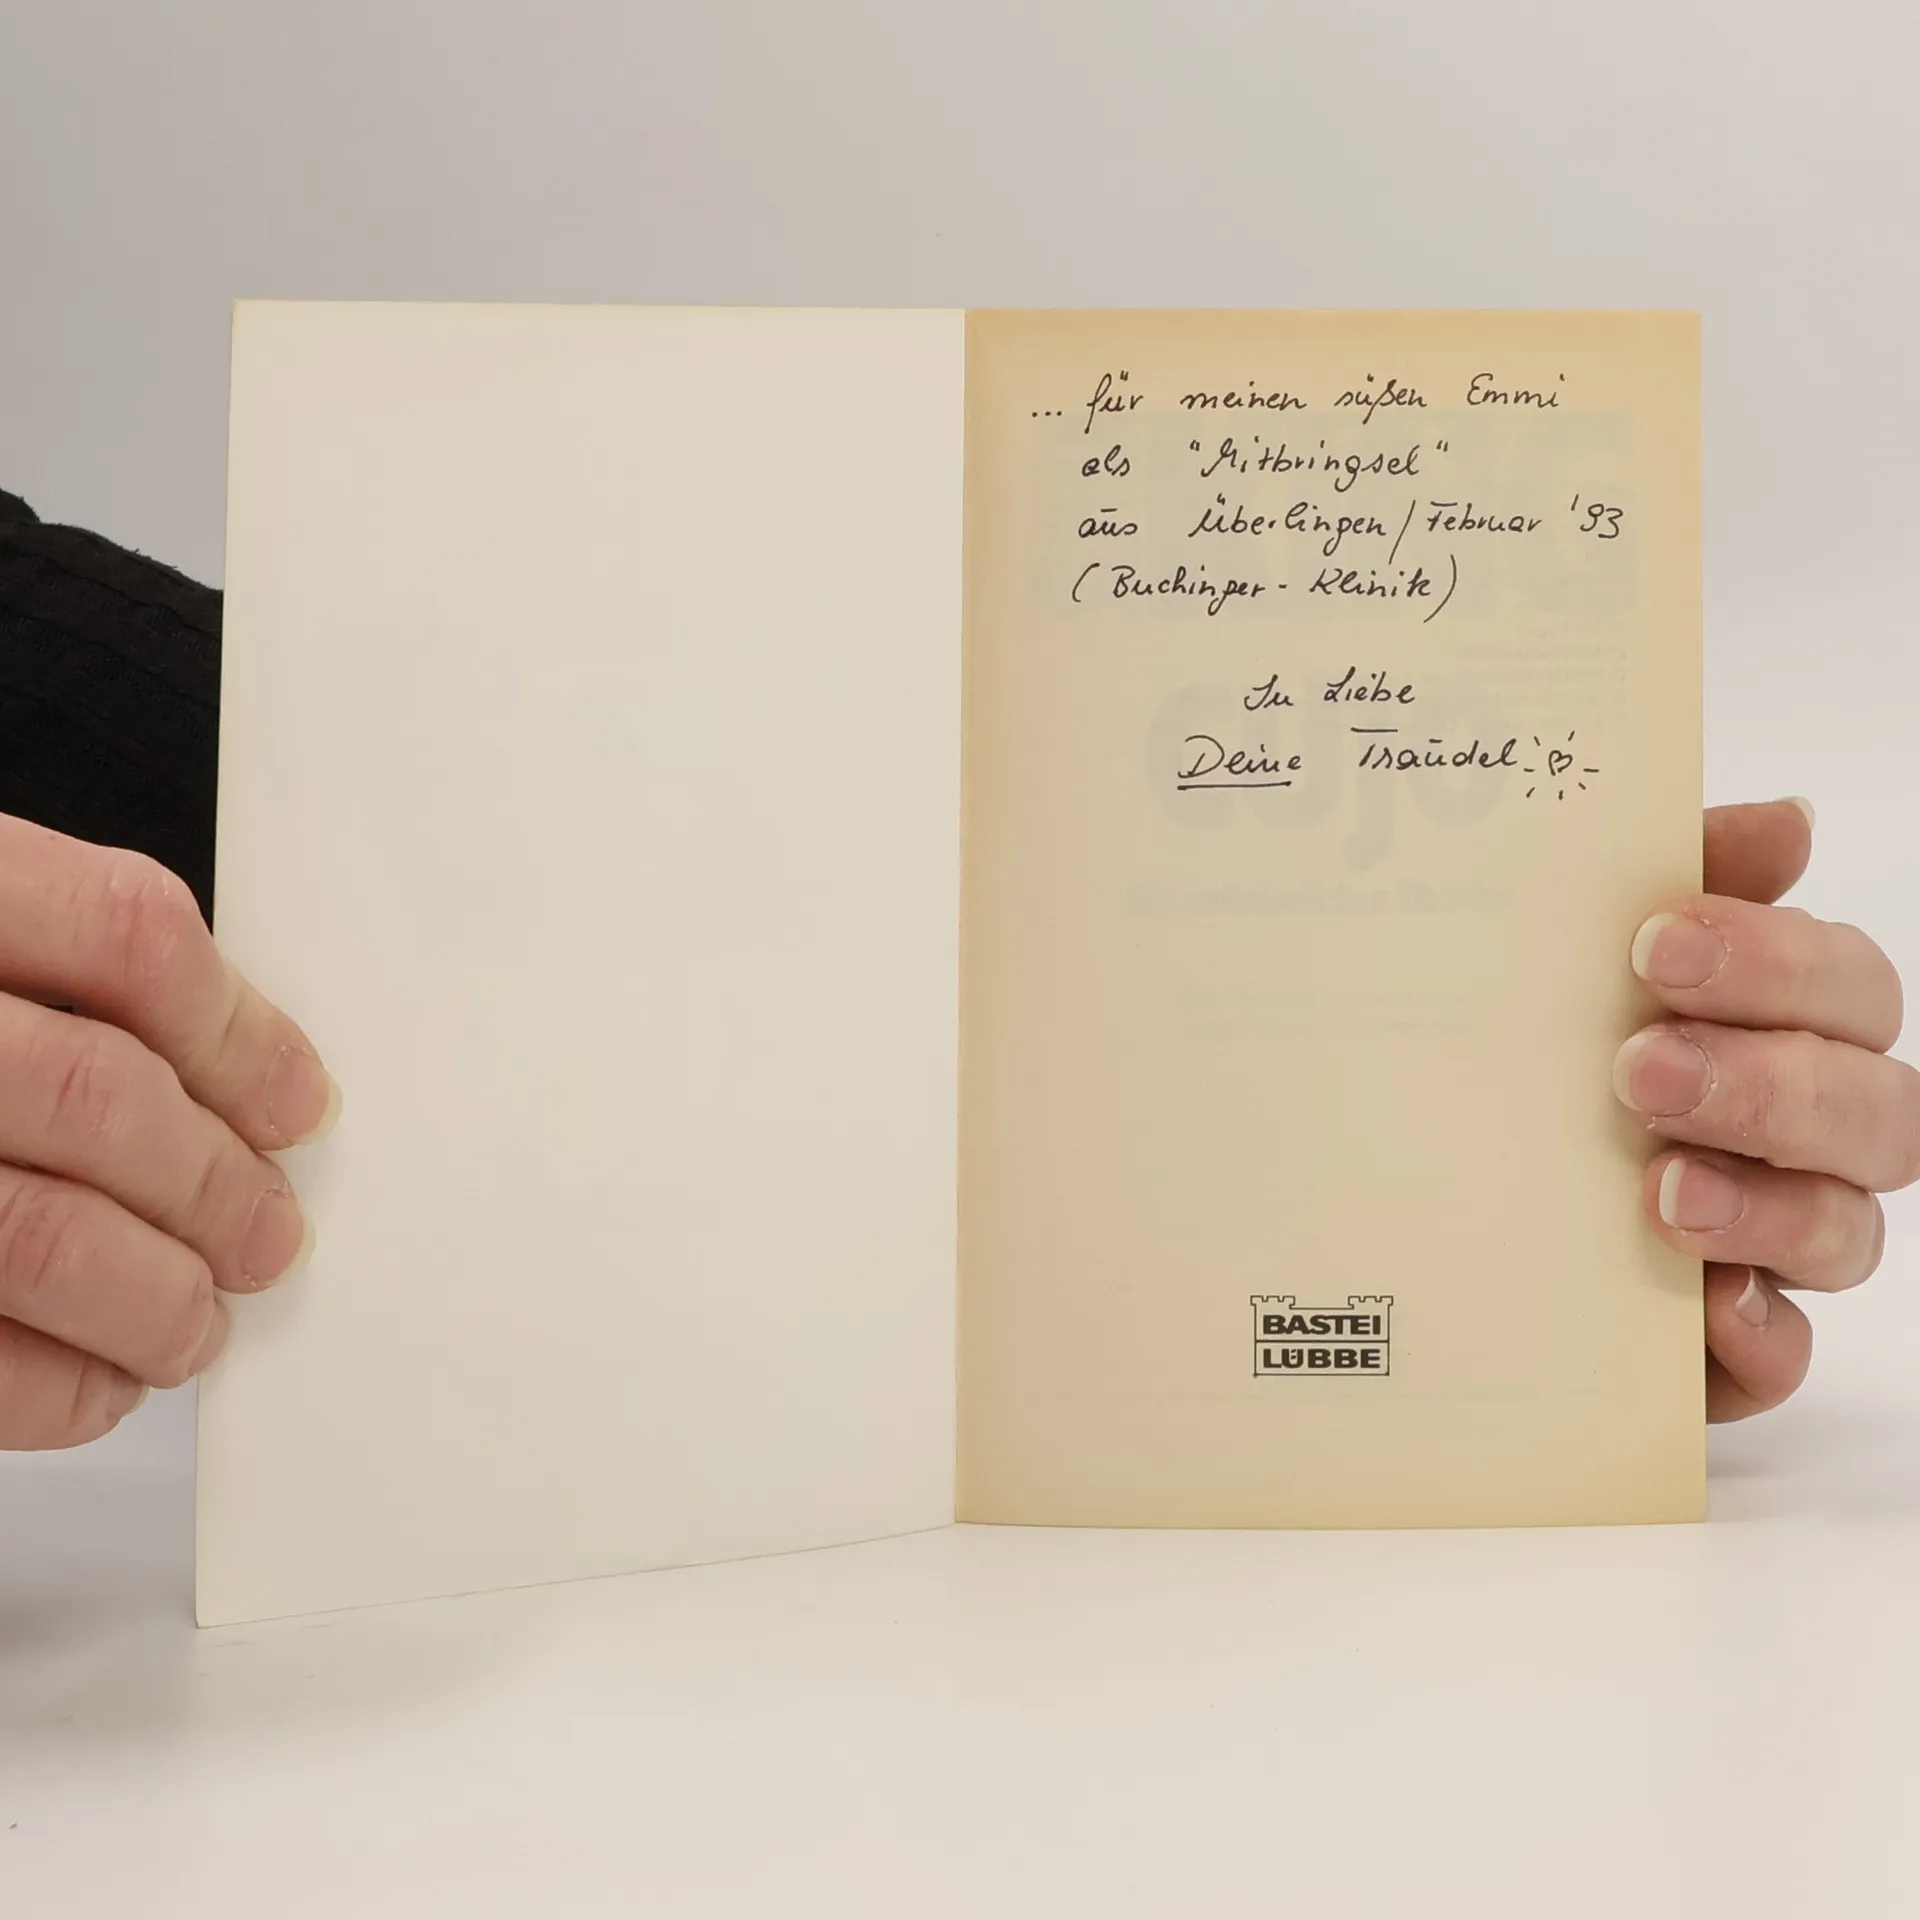 ... für meinen süßen Emmi
als "Mitbringsel"
aus Überlingen / Februar '93
(Buchinger-Klinik)
In Liebe
Deine Traudel
BASTEI
LÜBBE